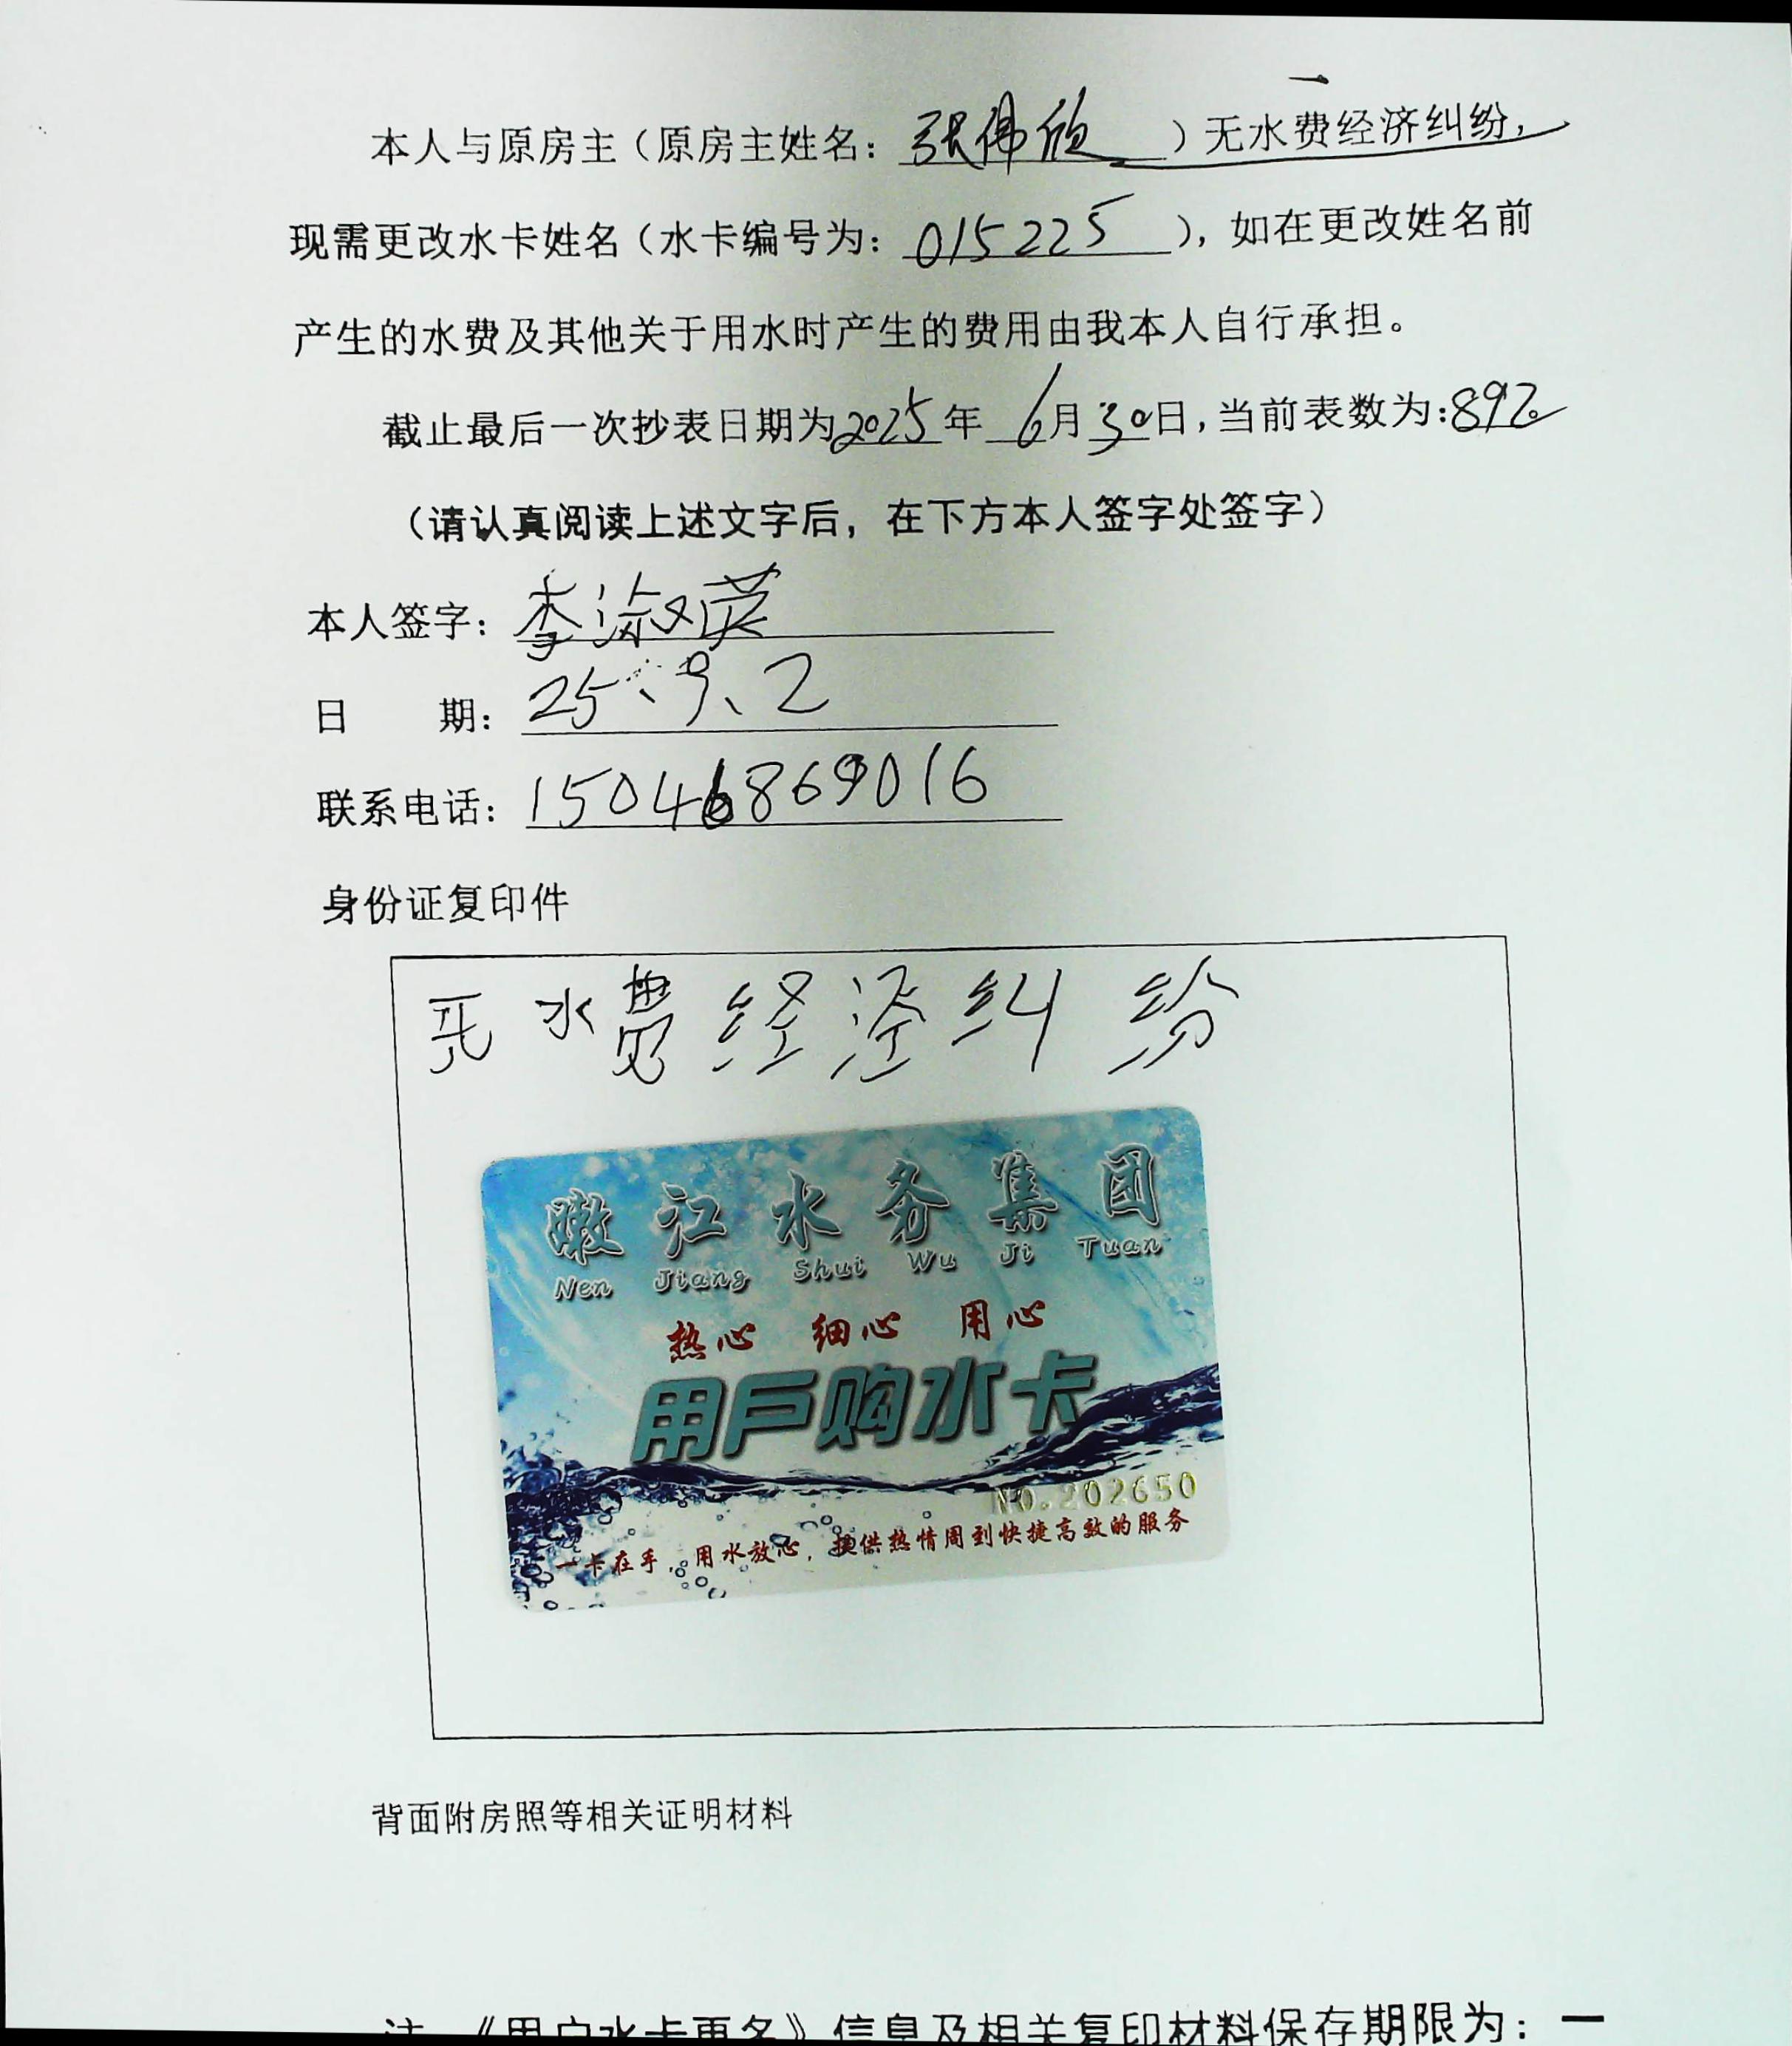 本人与原房主（原房主姓名：张伟欣）无水费经济纠纷，
现需更改水卡姓名（水卡编号为：015225），如在更改姓名前
产生的水费及其他关于用水时产生的费用由我本人自行承担。
截止最后一次抄表日期为2025年6月30日，当前表数为：892
（请认真阅读上述文字后，在下方本人签字处签字）
本人签字：李淑英
日期：25、9、2
联系电话：15046869016
身份证复印件
无水费经济纠纷
嫩江水务集团
Nen Jiang Shui Wu Ji Tuan
热心 细心 用心
用戶购水卡
NO.202650
一卡在手，用水放心，提供热情周到快捷高效的服务
背面附房照等相关证明材料
注：《用户水卡更名》信息及相关复印材料保存期限为：一